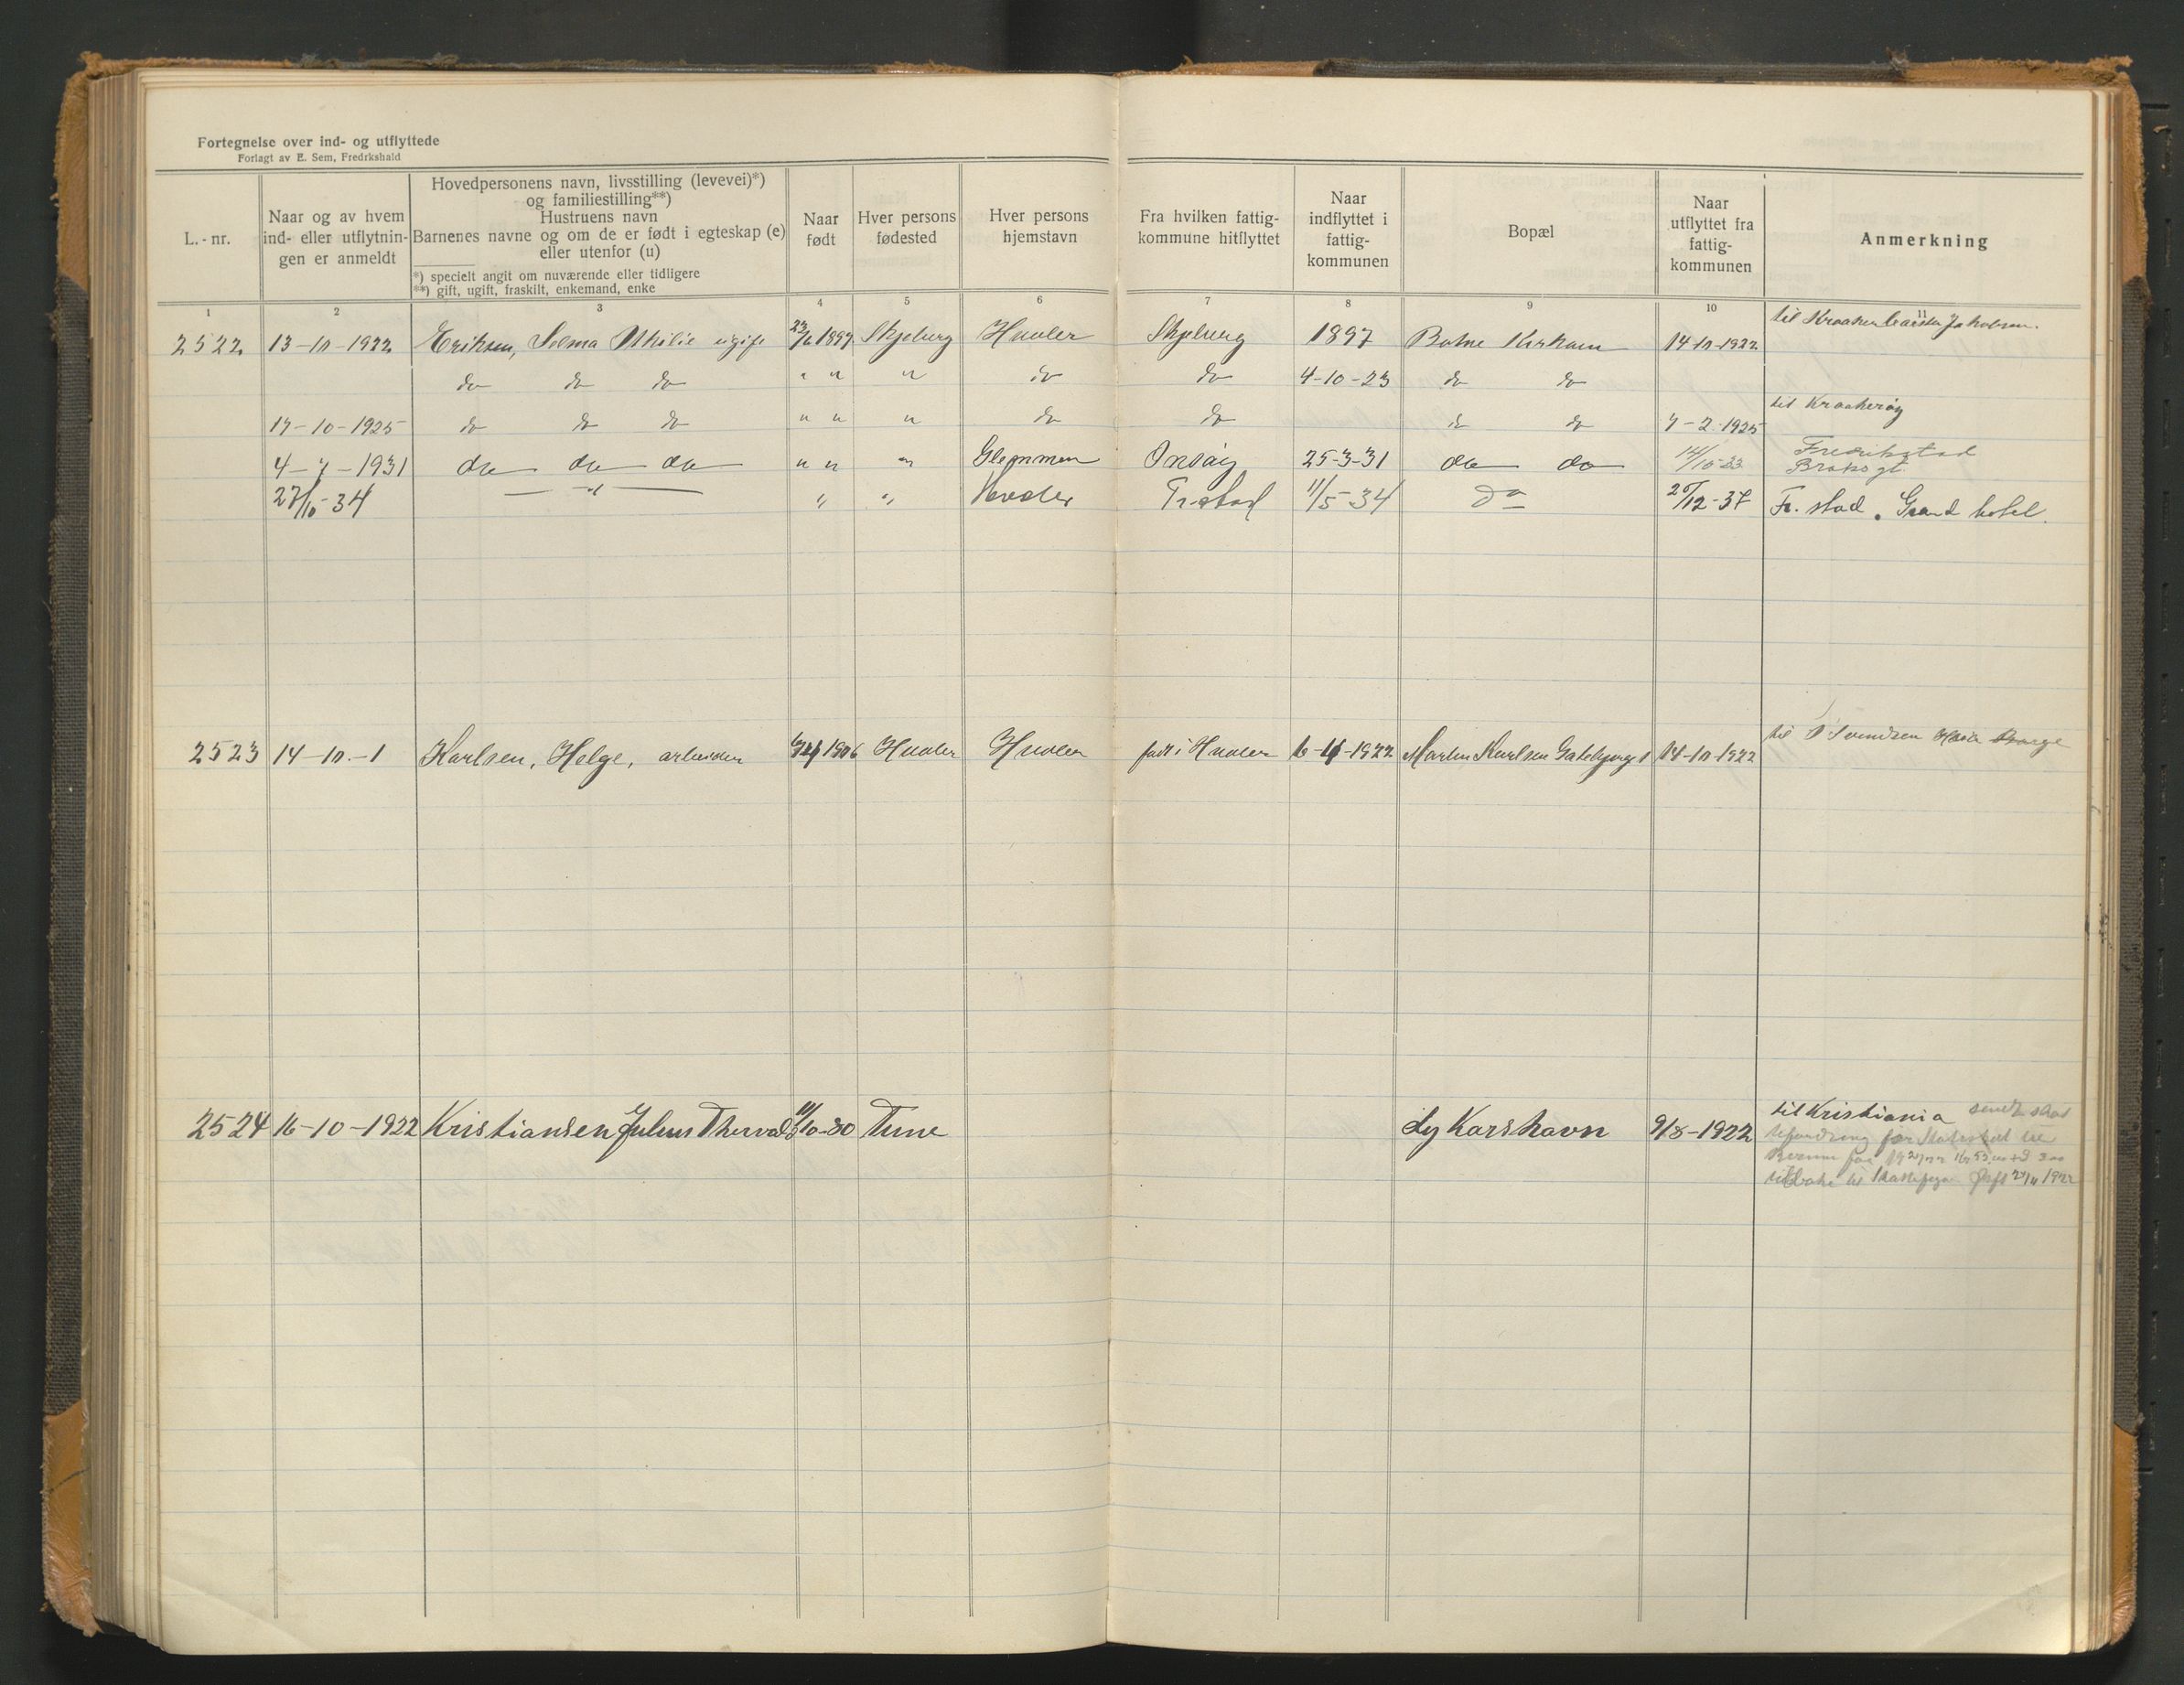 Fortegnelse over ind- og utflyttede
Forlagt av E. Sem, Fredrkshald
L.-nr.
Naar og av hvem ind- eller utflytnin- gen er anmeldt
Hovedpersonens navn, livsstilling (levevei)*)
og familiestilling**)
Hustruens navn
Barnenes navne og om de er født i egteskap (e)
eller utenfor (u)
*) specielt angit om nuværende eller tidligere
**) gift, ugift, fraskilt, enkemand, enke
Naar født
Hver persons fødested
Hver persons hjemstavn
Fra hvilken fattig- kommune hitflyttet
Naar indflyttet i fattig- kommunen
Bopæl
Naar utflyttet fra fattig- kommunen
Anmerkning
1 2 3 4 5 6 7 8 9 10
2522 13-10-1922 Eriksen, Selma Othilie ugift 23/6 1897 Skjeberg Hvaler Skjeberg 1897 Botne Kirkøen 14-10-1922 til Jakobsen.
do do do " " " do do 4-10-23 do do
17-10-1925 do do do " " " do do do do 7-2-1925 til Kraakerøy
4-7-1931 do do do " " " Glemmen Onsøy 25-3-31 do do 14/10-33 Fredrikstad
27/10-34 —"— " " Hvaler Fr.stad 11/5-34 do 20/12-37 Fr. stad. Grand hotel.
2523 14-10-1 Karlsen, Helge, arbeider 1906 Hvaler Hvaler født i Hvaler 1922 Martin Karlsen 14-10-1922 til Svendsen Borge
2524 16-10-1922 Kristiansen Julius Thorvald 11/10-80 Tune Ly Karshavn 9/8-1922 til Kristiania sendt skat
for
tilbake til 24/11 1922